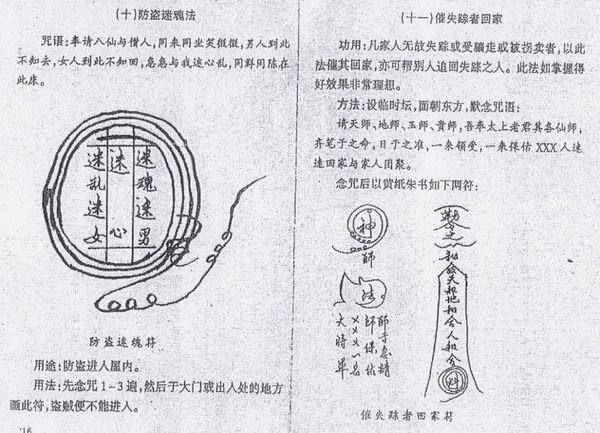 (十)防盗迷魂法
咒语:奉请八仙与僧人,同来同坐笑微微,男人到此
不知去,女人到此不知回,急急与我迷心乱,同群同陈在
此床。
迷魂迷男
迷心
迷乱迷女
防盗迷魂符
用途:防盗进人屋内。
用法:先念咒1~3遍,然后于大门或出人处的地方
画此符,盗贼便不能进人。
16
(十一)催失踪者回家
功用:凡家人无故失踪或受骗走或被拐卖者,以此
法催其回家,亦可帮别人追回失踪之人。此法如掌握得
好效果非常理想。
方法:设临时坛,面朝东方,默念咒语:
请天师、地师、玉师、贵师,吾奉太上老君其各仙师,
齐笔于之命,日于之准,一来领受,一来保佑XXX人速
速回家与家人团聚。
念咒后以黄纸朱书如下两符:
神
师
法
師保佑
×××人名
大將軍
和合天和地和合人和合
催失踪者回家符